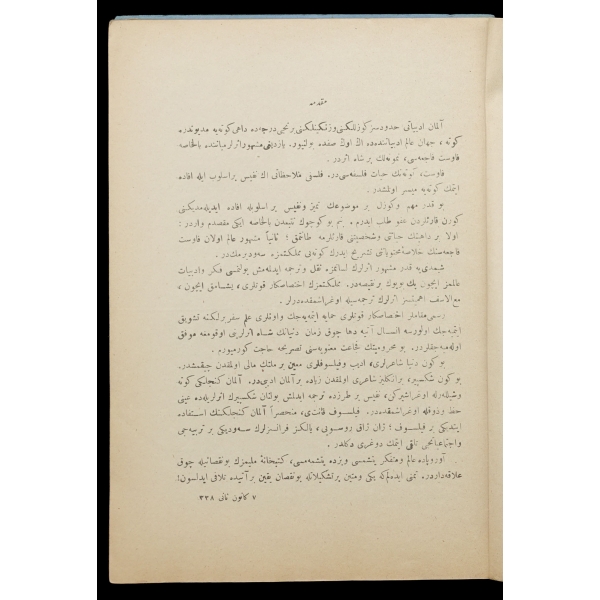 مقدمه
آلمان ادبیاتی حدودسز کوزللکنی و زنکینلکنی برنجی درجه‌ده داهی کوته‌یه مدیوندر.
کوته، جهان عالم ادبیاتنده‌ده اڭ اوڭ صفده بولنیور. یازدیغی مشهور اثرلر میاننده بالخاصه
فاوست فاجعه‌سی، نمونه‌لك بر شاه اثردر.
فاوست، کوته‌نك حیات فلسفه‌سی‌در. فلسفی ملاحظاتی اك نفیس بر اسلوب ایله افاده
ایتمك کوته‌یه میسر اولمشدر.
بو قدر مهم و کوزل بر موضوعك تمیز و نفیس بر اسلوبله افاده ایدیله‌مدیکنی
کورن قارئلردن عفو طلب ایدرم. بنم بو کوچوك تتبعمدن بالخاصه ایکی مقصدم واردر:
اولا بر داهینك حیاتی و شخصیتنی قارئلرمه طانتمق؛ ثانیاً مشهور عالم اولان فاوست
فاجعه‌سنك خلاصهٔ محتویاتنی تشریح ایدرك کوته‌یی مملکتمزه سه‌ودیرمك‌در.
شیمدی‌یه قدر مشهور اثرلرك لسانمزه نقل و ترجمه ایدلمه‌مش بولنمسی فکر و ادبیات
عالممز ایچون پك بویوك بر نقیصه‌در. مملکتمزك اختصاصکار قوتلری، یشامق ایچون،
مع‌الاسف اهمیتسز اثرلرك ترجمه‌سیله اوغراشمقده‌درلر.
رسمی مقاملر اختصاصکار قوتلری حمایه ایتمیه‌جك و اونلری علمی سفربرلکنه تشویق
ایتمیه‌جك اولورسه انسال آتیه دها چوق زمان دنیانك شاه اثرلرینی اوقومغه موفق
اوله‌میه‌جقلردر. بو محرومیتك فجاعت معنویه‌سنی تصریحه حاجت کورمیورم.
بو کون دنیا شاعرلری، ادیب و فیلسوفلری معین بر ملتك مالی اولمقدن چیقمشدر.
بو کون شکسپیر، بر انکلیز شاعری اولمقدن زیاده بر آلمان ادیبی‌در. آلمان کنجلکی کوته
و شیللرله اوغراشیرکن، نفیس بر طرزده ترجمه ایدلمش بولنان شکسپیرك اثرلریله‌ده عینی
حظ و ذوقله اوغراشمقده‌در. فیلسوف قانت‌ی، منحصراً آلمان کنجلکنك استفاده
ایتدیکی بر فیلسوف؛ ژان ژاق روسویی، یالکنز فرانسزلرك سه‌ودیکی بر تربیه‌جی
و اجتماعیاتجی تلقی ایتمك دوغری دکلدر.
آوروپاده عالم و متفکر یتیشمسی و بزده یتیشمه‌مسی، کتبخانهٔ ملیمزك بو نقصانیله چوق
علاقه‌داردر. تمنی ایده‌لم‌که یکی و متین بر تشکیلاتله بو نقصان یقین بر آتیده تلافی ایدلسون!
٧ کانون ثانی ٣٣٨